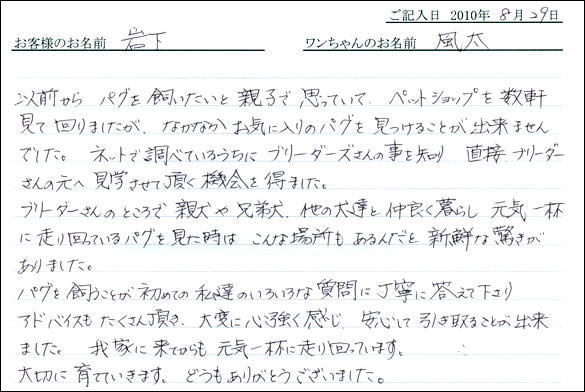 ご記入日 2010年 8月29日
お客様のお名前 岩下 ワンちゃんのお名前 風太
以前から パグを飼いたいと親子で思っていて、ペットショップを数軒
見て回りましたが、なかなかお気に入りのパグを見つけることが出来ません
でした。 ネットで調べているうちに ブリーダーズさんの事を知り 直接 ブリーダー
さんの元へ 見学させて頂く機会を得ました。
ブリーダーさんのところで 親犬や兄弟犬、他の犬達と仲良く暮らし 元気一杯
に走り回っているパグを見た時は こんな場所もあるんだと 新鮮な驚きが
ありました。
パグを飼うことが初めての私達のいろいろな質問に丁寧に答えて下さり
アドバイスもたくさん頂き、大変に心強く感じ、安心して引き取ることが出来
ました。 我家に来てからも 元気一杯に走り回っています。
大切に育てていきます。 どうもありがとうございました。